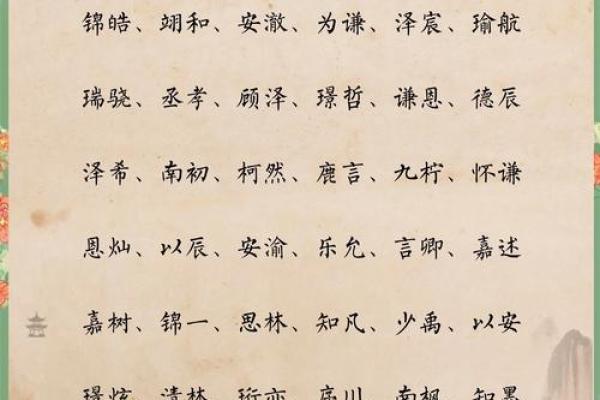 锦皓、翊和、安澈、为谦、泽宸、瑜航
瑞骁、丞孝、顾泽、璟哲、谦恩、德辰
泽希、南初、柯然、鹿言、九柠、怀谦
恩灿、以辰、安渝、乐允、言卿、嘉述
嘉树、锦一、思林、知凡、少禹、以安
璟炫、清林、珩亦、序川、南枫、知墨